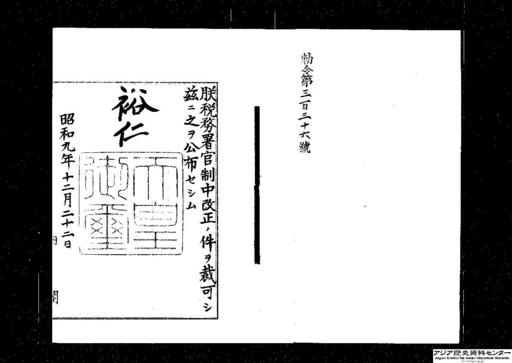 勅令第三百三十六號
朕税務署官制中改正ノ件ヲ裁可シ
茲ニ之ヲ公布セシム
裕仁
天皇御璽
昭和九年十二月二十二日
内閣
アジア歴史資料センター
Japan Center for Asian Historical Records